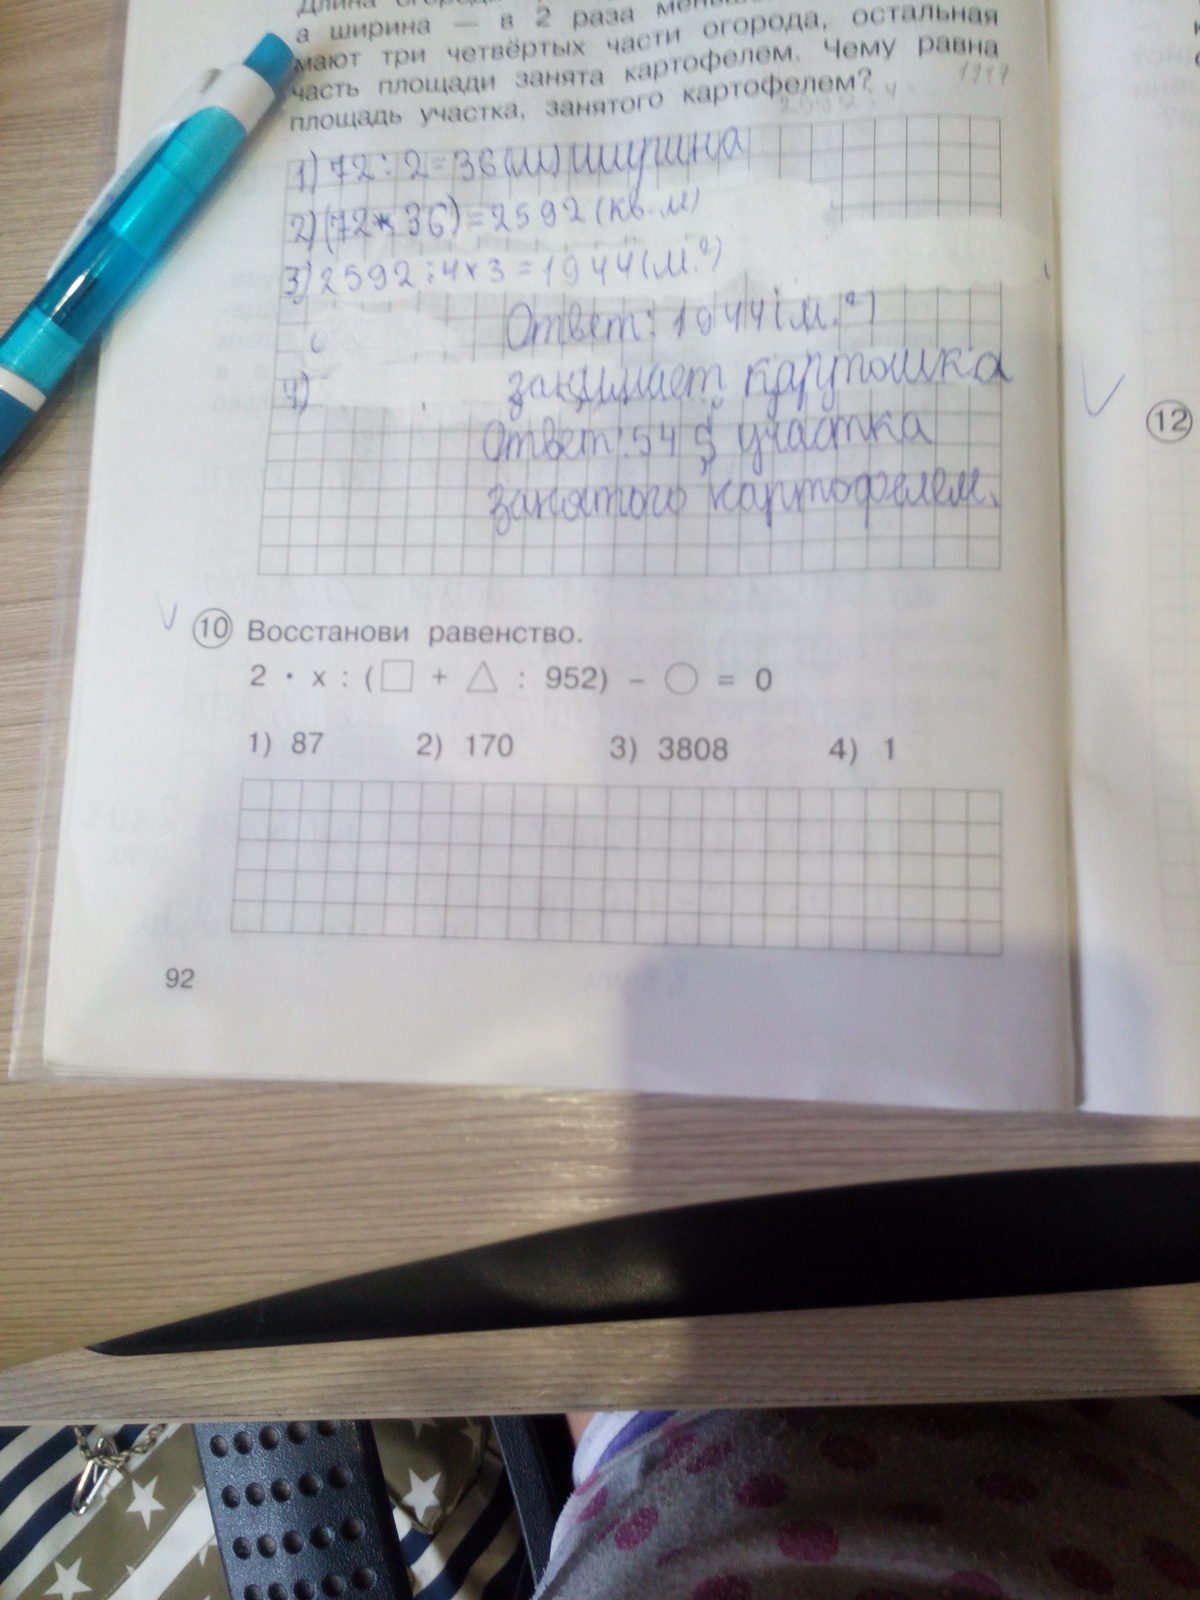 а ширина — в 2 раза
мают три четвёртых части огорода, остальная
часть площади занята картофелем. Чему равна
площадь участка, занятого картофелем?
1) 72 : 2 = 36 (м) ширина
2) (72 * 36) = 2592 (кв. м)
3) 2592 : 4 x 3 = 1944 (м.²)
Ответ: 1944 (м.²)
4)
занимает картошка
Ответ: 54 S участка
занятого картофелем.
12
10 Восстанови равенство.
2 · x : (□ + △ : 952) – ○ = 0
1) 87 2) 170 3) 3808 4) 1
92